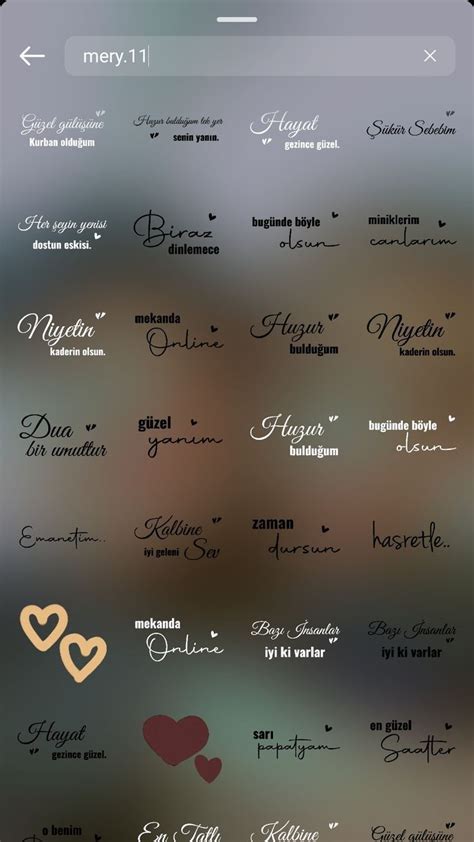 mery.11
Güzel gülüşüne
Kurban olduğum
Huzur bulduğum tek yer
senin yanın.
Hayat
gezince güzel.
Şükür Sebebim
Her şeyin yenisi
dostun eskisi.
Biraz
dinlemece
bugünde böyle
olsun
miniklerim
canlarım
Niyetin
kaderin olsun.
mekanda
Online
Huzur
bulduğum
Niyetin
kaderin olsun.
Dua
bir umuttur
güzel
yanım
Huzur
bulduğum
bugünde böyle
olsun
Emanetim..
Kalbine
iyi geleni Sev
zaman
dursun
hasretle..
mekanda
Online
Bazı İnsanlar
iyi ki varlar
Bazı İnsanlar
iyi ki varlar
Hayat
gezince güzel.
sarı
papatyam
en güzel
Saatler
o benim
En Tatlı
Kalbine
Güzel gülüşüne